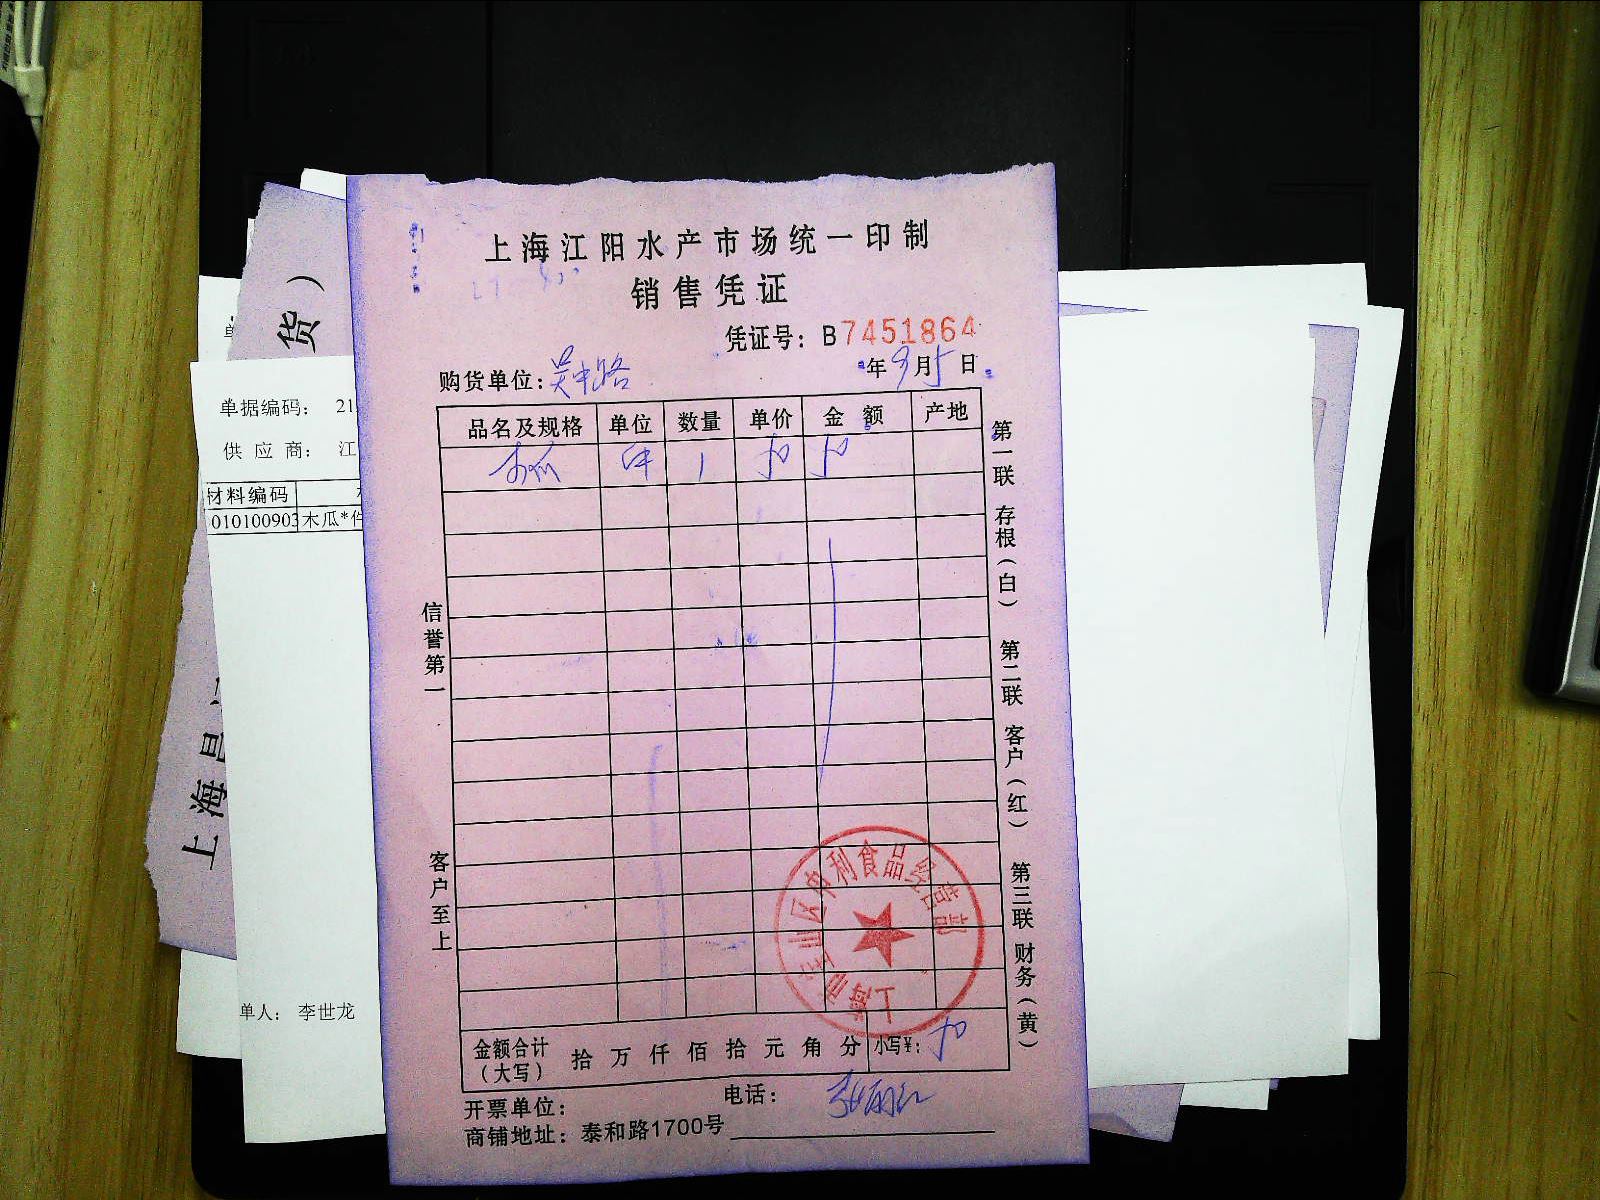 上海江阳水产市场统一印制
销售凭证
凭证号：B7451864
购货单位：吴中路 年9月5日
品名及规格 单位 数量 单价 金额 产地
木瓜 件 1 50 50
信誉第一
客户至上
第一联 存根（白） 第二联 客户（红） 第三联 财务（黄）
金额合计（大写） 拾万仟佰拾元角分 小写¥：50
电话：
开票单位：
商铺地址：泰和路1700号
货）
上海昌
单据编码： 21
供应商： 江
材料编码
010100903 木瓜*件
单人： 李世龙